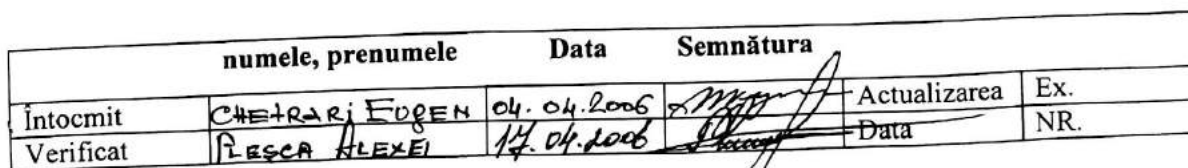 numele, prenumele Data Semnătura
Întocmit CHETRARi EUGEN 04.04.2006 Actualizarea Ex.
Verificat PLEȘCA ALEXEI 17.04.2006 Data NR.